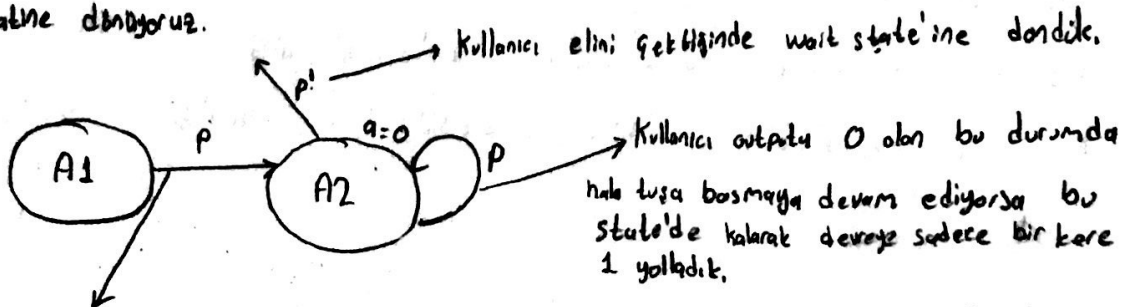 dönüyoruz.
p! Kullanıcı elini çektiğinde wait state'ine döndük.
A1 p A2 a=0 p
Kullanıcı outputu 0 olan bu durumda
hala tuşa basmaya devam ediyorsa bu
state'de kalarak devreye sadece bir kere
1 yolladık.